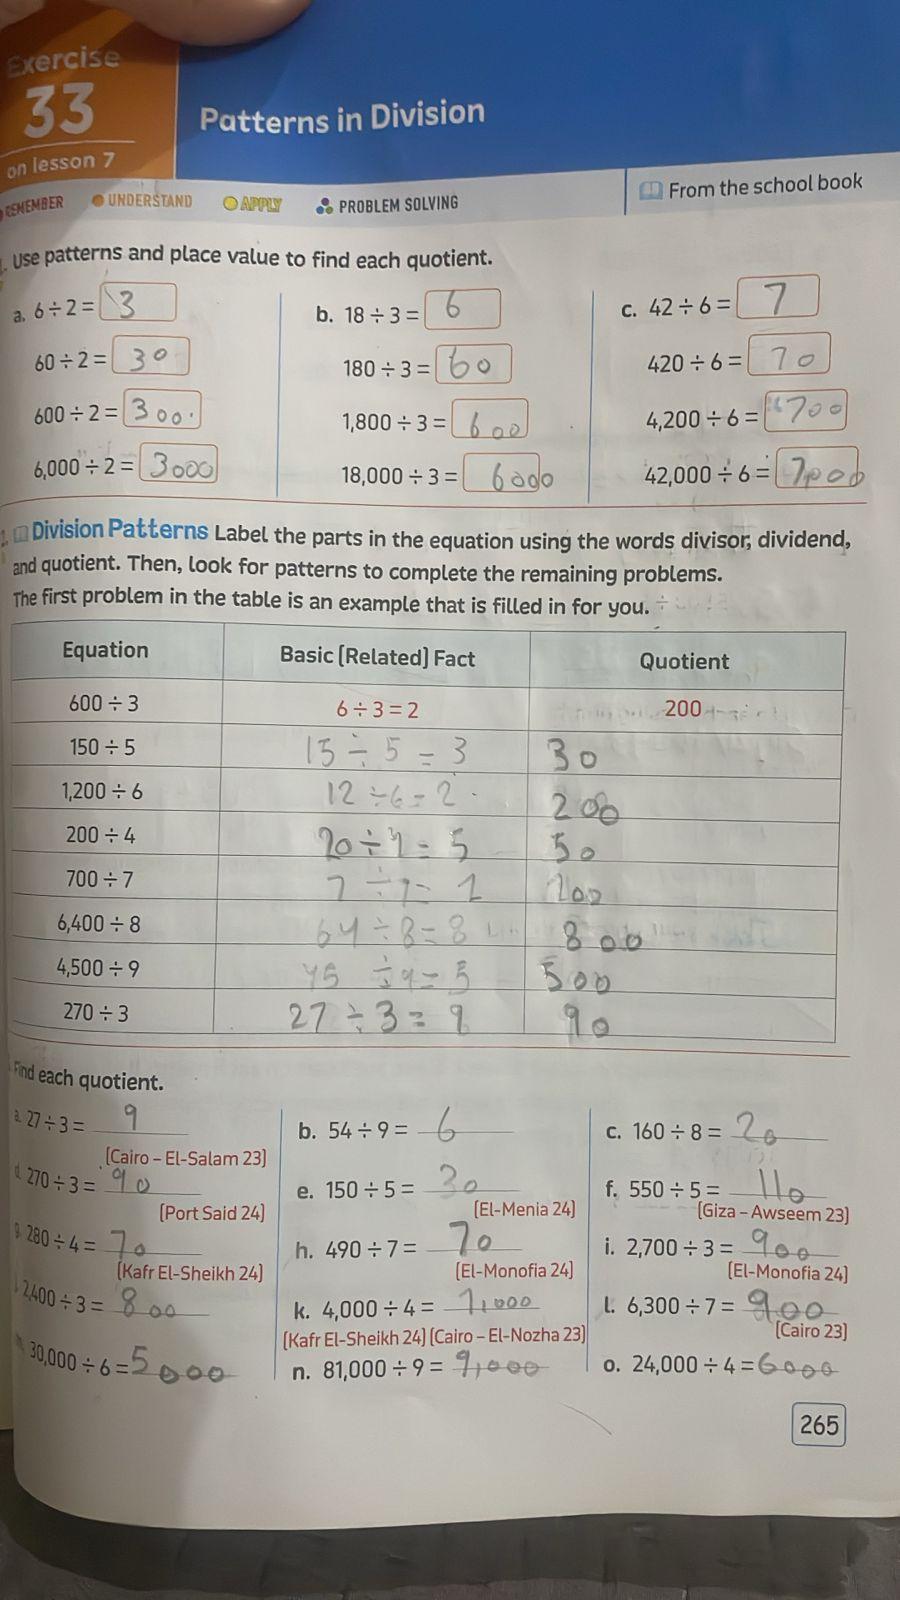 Exercise
33
on lesson 7
Patterns in Division
REMEMBER UNDERSTAND APPLY PROBLEM SOLVING From the school book
Use patterns and place value to find each quotient.
a. 6 ÷ 2 = 3 b. 18 ÷ 3 = 6 c. 42 ÷ 6 = 7
60 ÷ 2 = 30 180 ÷ 3 = 60 420 ÷ 6 = 70
600 ÷ 2 = 300 1,800 ÷ 3 = 600 4,200 ÷ 6 = 700
6,000 ÷ 2 = 3000 18,000 ÷ 3 = 6000 42,000 ÷ 6 = 7000
2. Division Patterns Label the parts in the equation using the words divisor, dividend,
and quotient. Then, look for patterns to complete the remaining problems.
The first problem in the table is an example that is filled in for you.
Equation Basic (Related) Fact Quotient
600 ÷ 3 6 ÷ 3 = 2 200
150 ÷ 5 15 ÷ 5 = 3 30
1,200 ÷ 6 12 ÷ 6 = 2 200
200 ÷ 4 20 ÷ 4 = 5 50
700 ÷ 7 7 ÷ 7 = 1 100
6,400 ÷ 8 64 ÷ 8 = 8 800
4,500 ÷ 9 45 ÷ 9 = 5 500
270 ÷ 3 27 ÷ 3 = 9 90
Find each quotient.
a. 27 ÷ 3 = 9 b. 54 ÷ 9 = 6 c. 160 ÷ 8 = 20
(Cairo – El-Salam 23)
d. 270 ÷ 3 = 90 e. 150 ÷ 5 = 30 f. 550 ÷ 5 = 110
(Port Said 24) (El-Menia 24) (Giza – Awseem 23)
g. 280 ÷ 4 = 70 h. 490 ÷ 7 = 70 i. 2,700 ÷ 3 = 900
(Kafr El-Sheikh 24) (El-Monofia 24) (El-Monofia 24)
2,400 ÷ 3 = 800 k. 4,000 ÷ 4 = 1,000 l. 6,300 ÷ 7 = 900
(Kafr El-Sheikh 24) (Cairo – El-Nozha 23) (Cairo 23)
30,000 ÷ 6 = 5000 n. 81,000 ÷ 9 = 9,000 o. 24,000 ÷ 4 = 6000
265